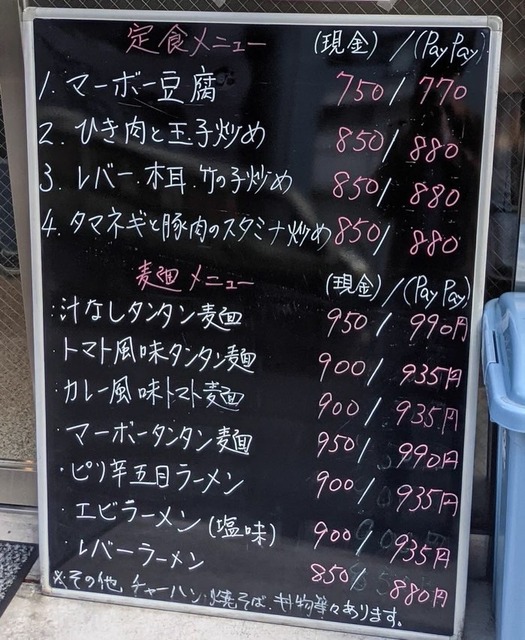 定食メニュー (現金)/(PayPay)
1. マーボー豆腐 750/770
2. ひき肉と玉子炒め 850/880
3. レバー・木耳・竹の子炒め 850/880
4. タマネギと豚肉のスタミナ炒め 850/880
麦麺メニュー (現金)/(PayPay)
・汁なしタンタン麺 950/990円
・トマト風味タンタン麺 900/935円
・カレー風味トマト麺 900/935円
・マーボータンタン麺 950/990円
・ピリ辛五目ラーメン 900/935円
・エビラーメン(塩味) 900/935円
・レバーラーメン 850/880円
※その他 チャーハン・焼そば、丼物等々あります。